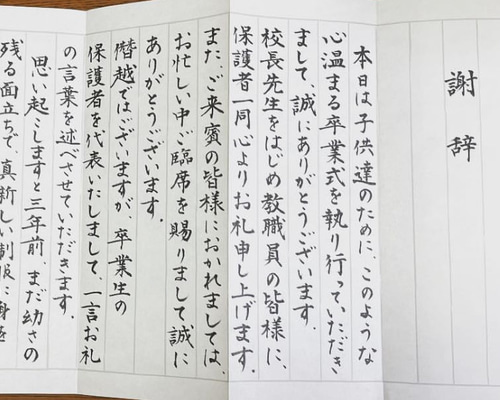 謝辞
本日は子供達のために、このような
心温まる卒業式を執り行っていただき
まして、誠にありがとうございます。
校長先生をはじめ教職員の皆様に、
保護者一同心よりお礼申し上げます。
また、ご来賓の皆様におかれましては、
お忙しい中ご臨席を賜りまして誠に
ありがとうございます。
僭越ではございますが、卒業生の
保護者を代表いたしまして、一言お礼
の言葉を述べさせていただきます。
思い起こしますと三年前、まだ幼さの
残る面立ちで、真新しい制服に身を